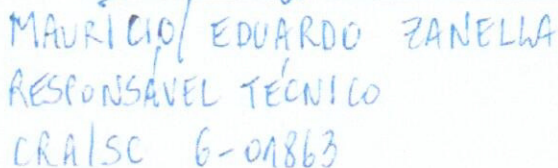 MAURÍCIO EDUARDO ZANELLA
RESPONSÁVEL TÉCNICO
CRA/SC 6-01863